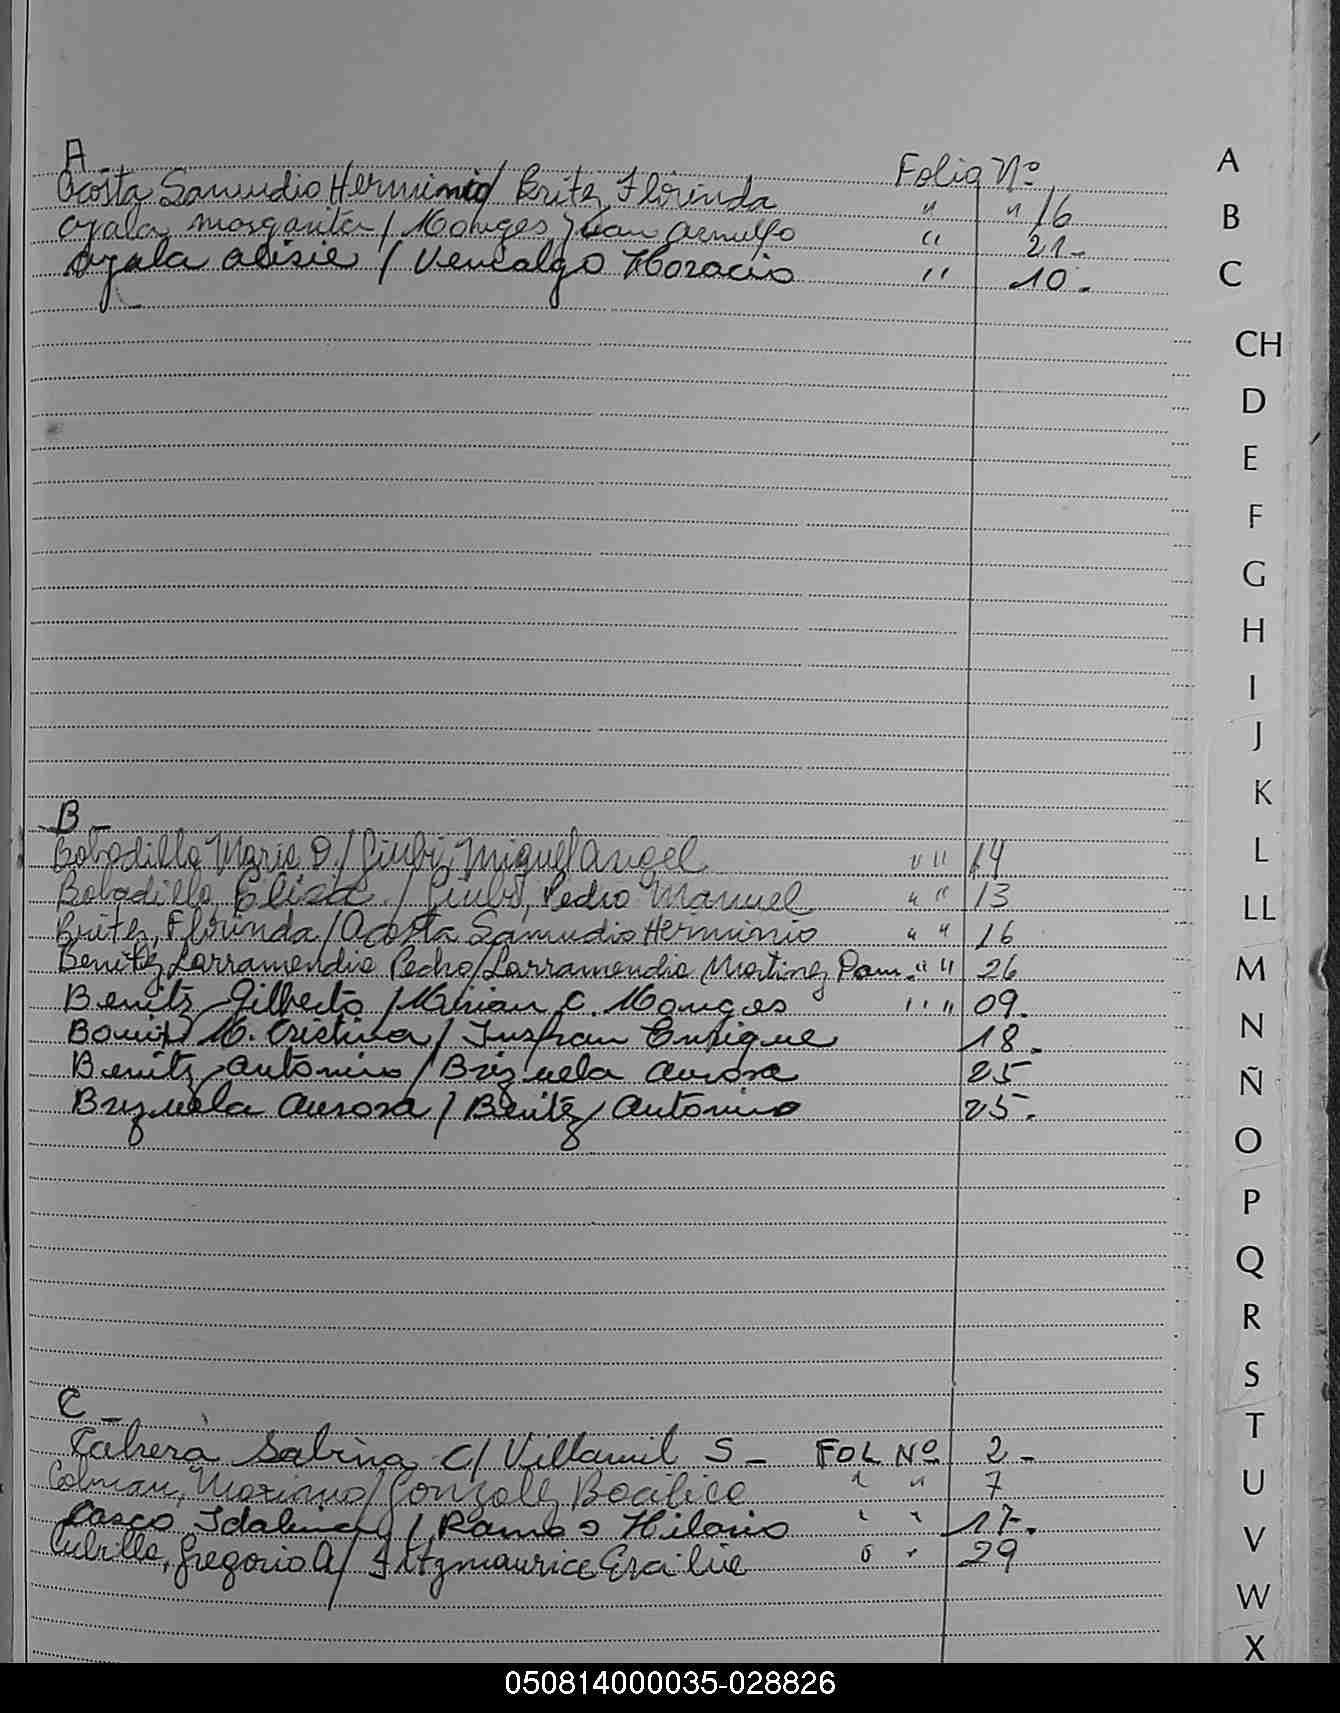 A
Acosta Samudio Herminio/ Britez Florinda Folio Nº
" " 16
Ayala margarita / Monges Juan Arnulfo " 21-
Ayala / Horacio " 10.
B-
Bobadilla Maria D. / Giubi, Miguel Angel " " 14
Bobadilla, Elisa / Giubi, Pedro Manuel " " 13
Britez, Florinda / Acosta Samudio Herminio " " 16
Benitez Larramendia Pedro / Larramendia Martinez " " 26
Benitz Gilberto / Mirian C. Monges " " 09.
M. Cristina / Insfran Enrique 18.
Benitz Antonino / Brizuela Aurora 25
Brizuela Aurora / Benitez Antonino 25.
C-
Cabrera Sabina C/ Villamil S- FOL Nº 2-
Colman, Mariano / Gonzalez " " 7
Casco / Ramos Hilario " " 17.
Gregorio A / Fitzmaurice " 29
A
B
C
CH
D
E
F
G
H
I
J
K
L
LL
M
N
Ñ
O
P
Q
R
S
T
U
V
W
X
050814000035-028826